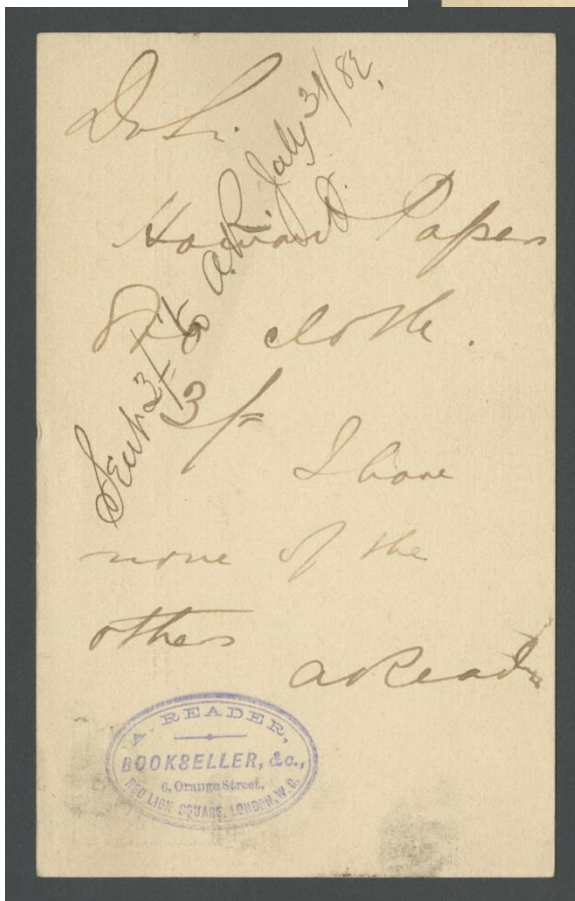 Dr Sir.
Howard Papers
8vo cloth.
3/=
I have
none of the
others
A Reader
Sent 3/- to A.R. July 31/82.
A. READER,
BOOKSELLER, &c.,
6, Orange Street,
RED LION SQUARE, LONDON, W.C.